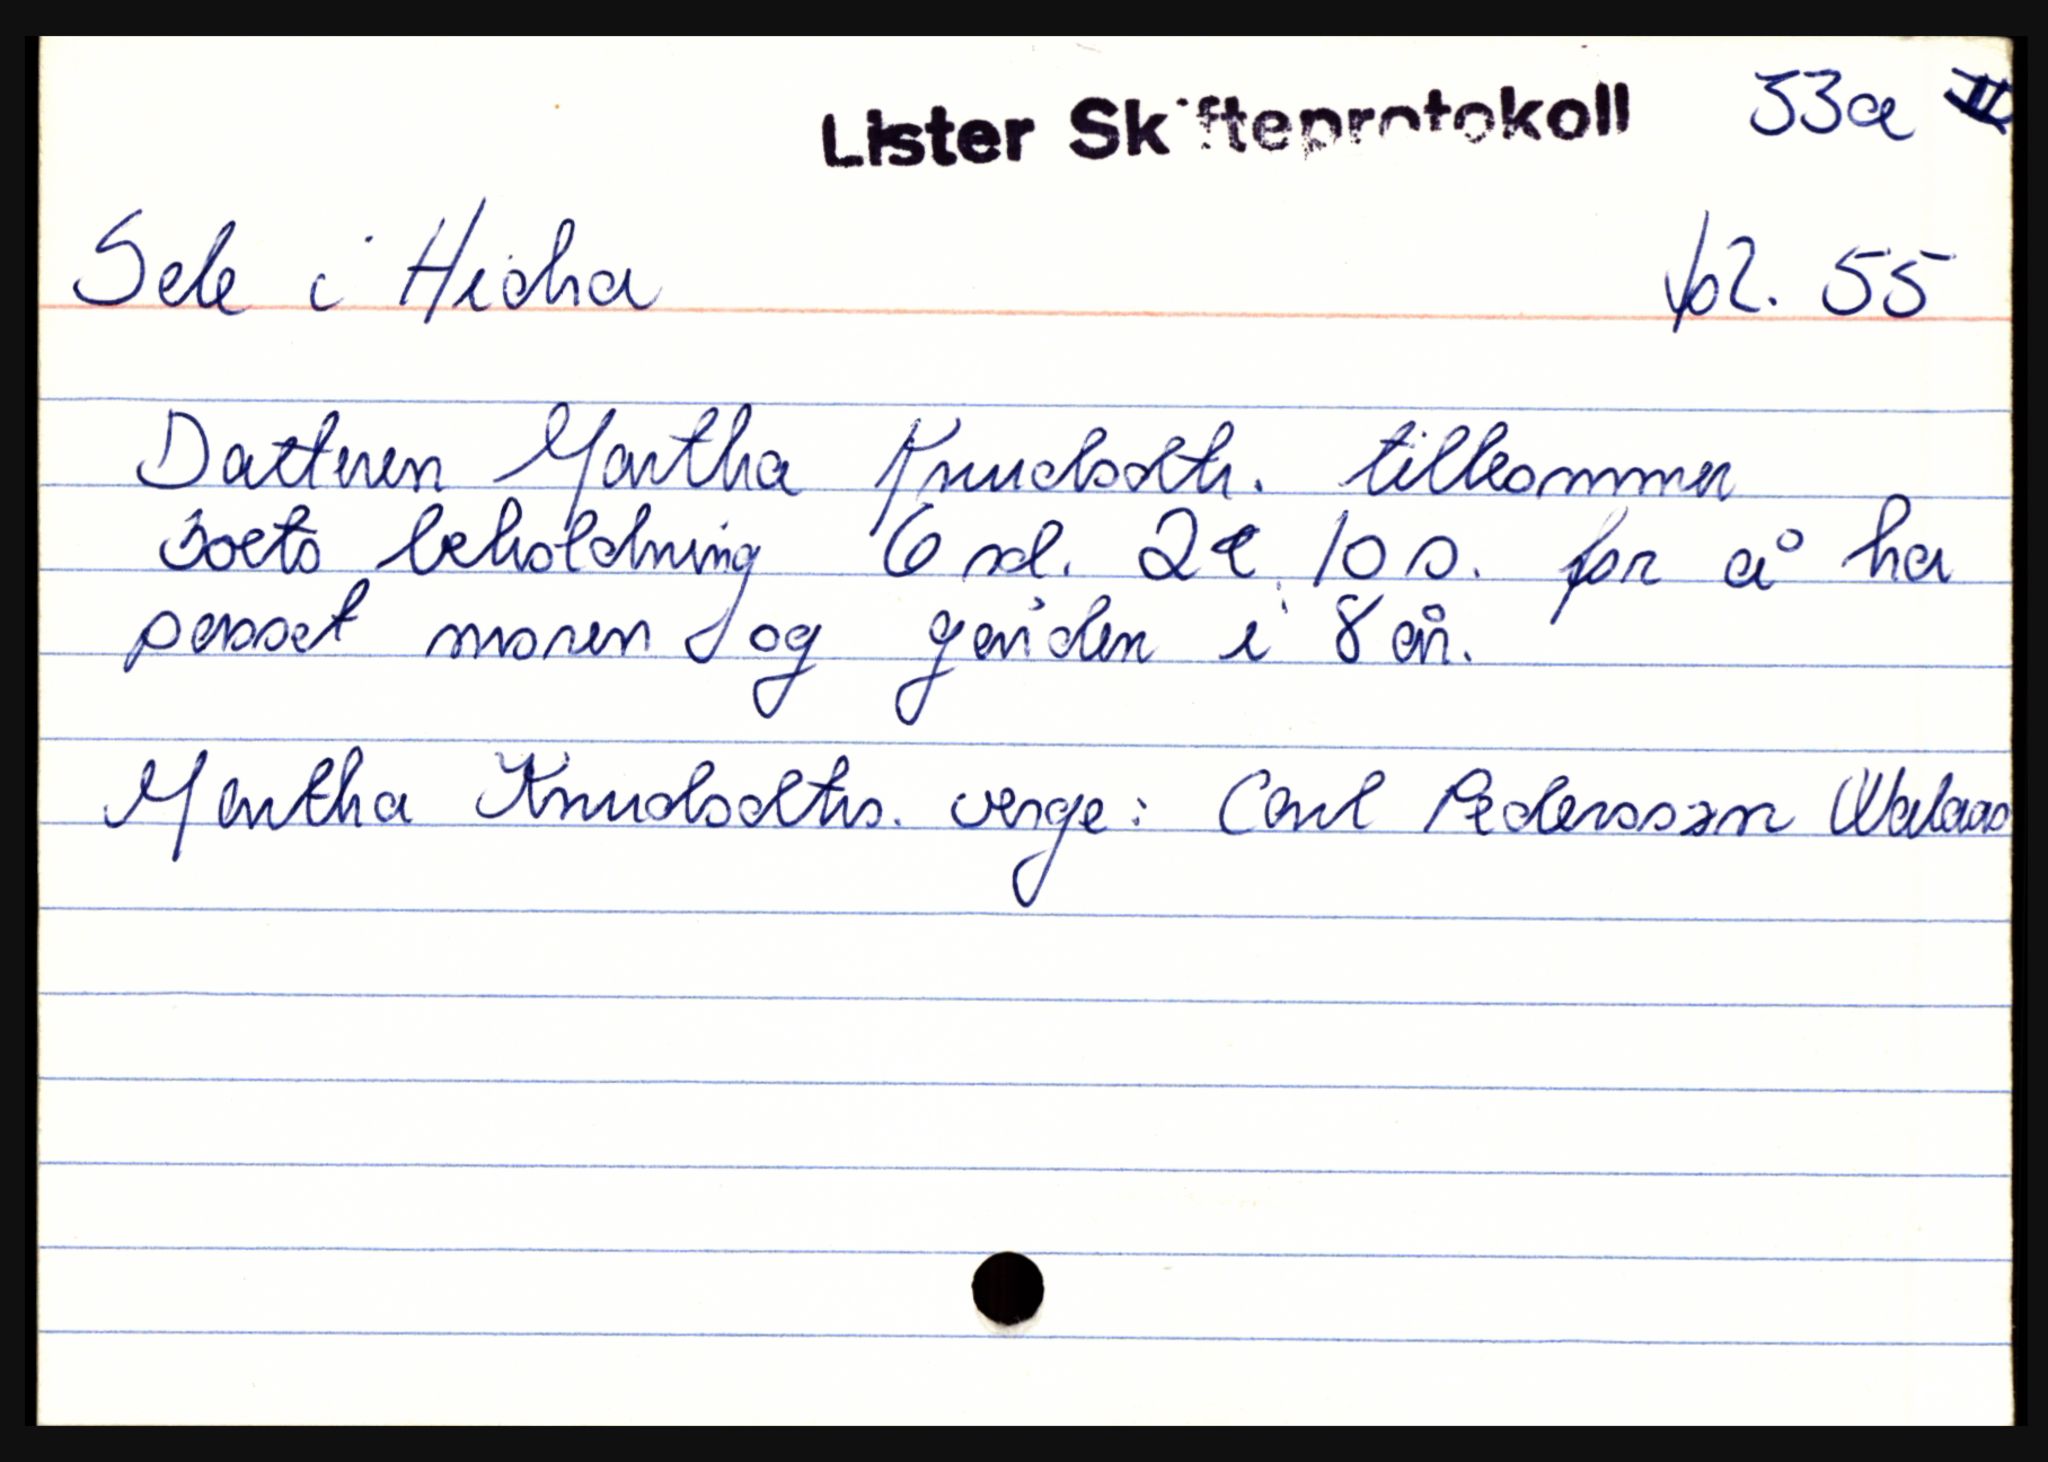 Lister Skifteprotokoll 33a II
Sele i Hidra fol. 55
Datteren Martha Knudsdtr. tilkommer
boets beholdning 6 rd. 2 10 s. for å ha
passet moren og gården i 8 år.
Martha Knudsdtrs. verge: Carl Pederssøn Walaas